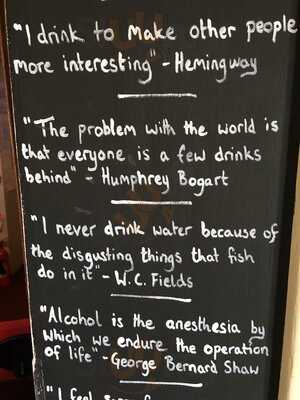 "I drink to make other people
more interesting" - Hemingway
"The problem with the world is
that everyone is a few drinks
behind" - Humphrey Bogart
"I never drink water because of
the disgusting things that fish
do in it" - W.C. Fields
"Alcohol is the anesthesia by
which we endure the operation
of life" - George Bernard Shaw
"I feel